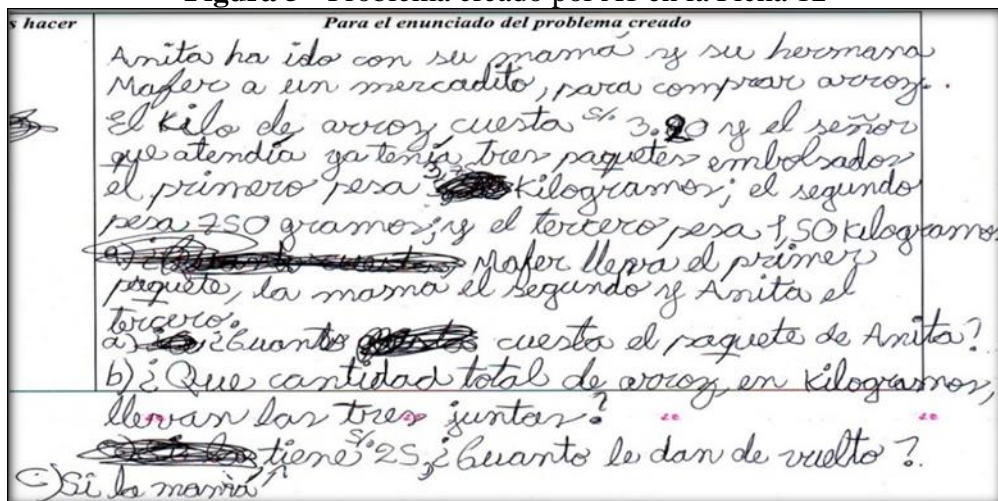 s hacer
Para el enunciado del problema creado
Anita ha ido con su mamá y su hermana
Mafer a un mercadito, para comprar arroz.
El kilo de arroz cuesta S/. 3.20 y el señor
que atendía ya tenía tres paquetes embolsados
el primero pesa kilogramos; el segundo
pesa 750 gramos; y el tercero pesa 1,50 kilogramos
Mafer lleva el primer
paquete, la mamá el segundo y Anita el
tercero.
a) ¿Cuanto cuesta el paquete de Anita?
b) ¿Que cantidad total de arroz, en kilogramos,
llevan las tres juntas?
tiene S/. 25, ¿Cuanto le dan de vuelto?
c) Si la mamá